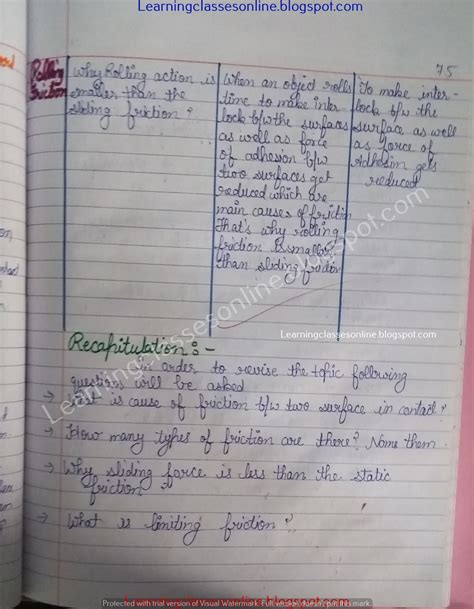 Learningclassesonline.blogspot.com
75
Rolling
Friction
Why Rolling action is
smaller than the
sliding friction?
When an object rolls
time to make inter
lock b/w the surfaces
as well as force
of adhesion b/w
two surfaces get
reduced which are
main causes of friction
That's why rolling
friction is smaller
than sliding friction
To make inter-
lock b/w the
surface as well
as force of
Adhesion gets
reduced
Learningclassesonline.blogspot.com
Learningclassesonline.blogspot.com
Recapitulation:-
In order to revise the topic following
questions will be asked
→ is cause of friction b/w two surface in contact?
→ How many types of friction are there? Name them
→ Why sliding force is less than the static
friction?
→ What is limiting friction?
Protected with trial version of Visual Watermark. Full version doesn't put this mark.
Learningclassesonline.blogspot.com